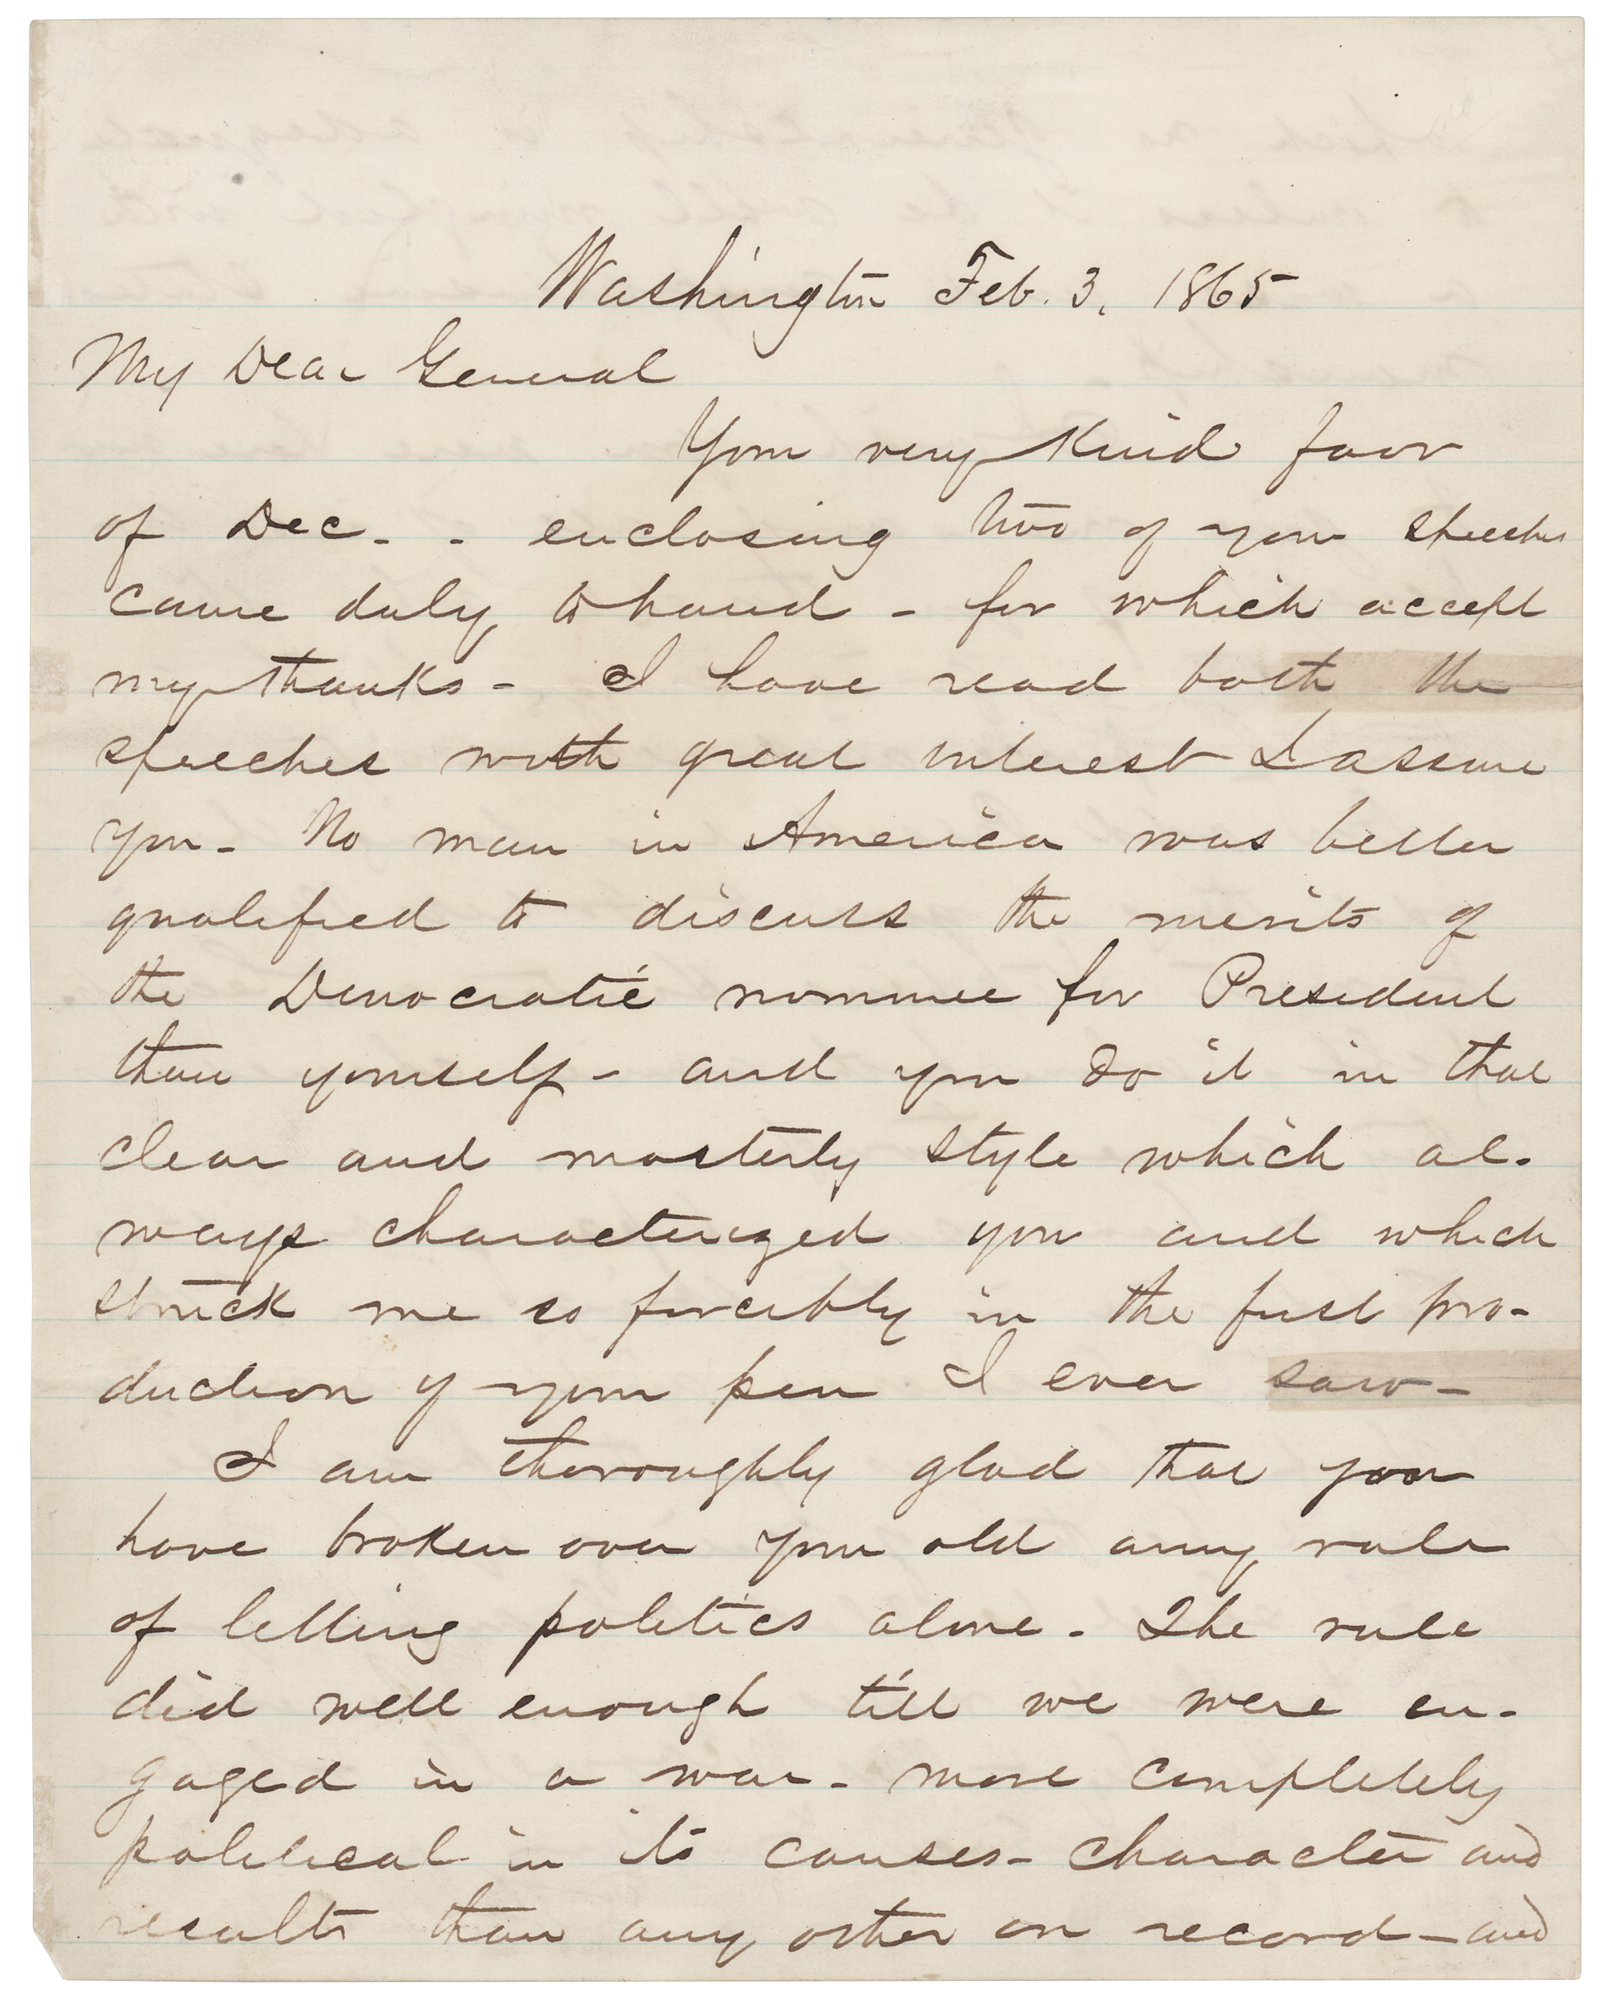 Washington Feb. 3, 1865
My Dear General
Your very kind favor
of Dec. - enclosing two of your speeches
came duly to hand - for which accept
my thanks - I have read both the
speeches with great interest I assure
you - No man in America was better
qualified to discuss the merits of
the Democratic nominee for President
than yourself - and you do it in that
clear and masterly style which al-
ways characterized you and which
struck me so forcibly in the first pro-
duction of your pen I ever saw -
I am thoroughly glad that you
have broken over your old army rule
of letting politics alone. The rule
did well enough till we were en-
gaged in a war - more completely
political in its causes - character and
results than any other on record - and